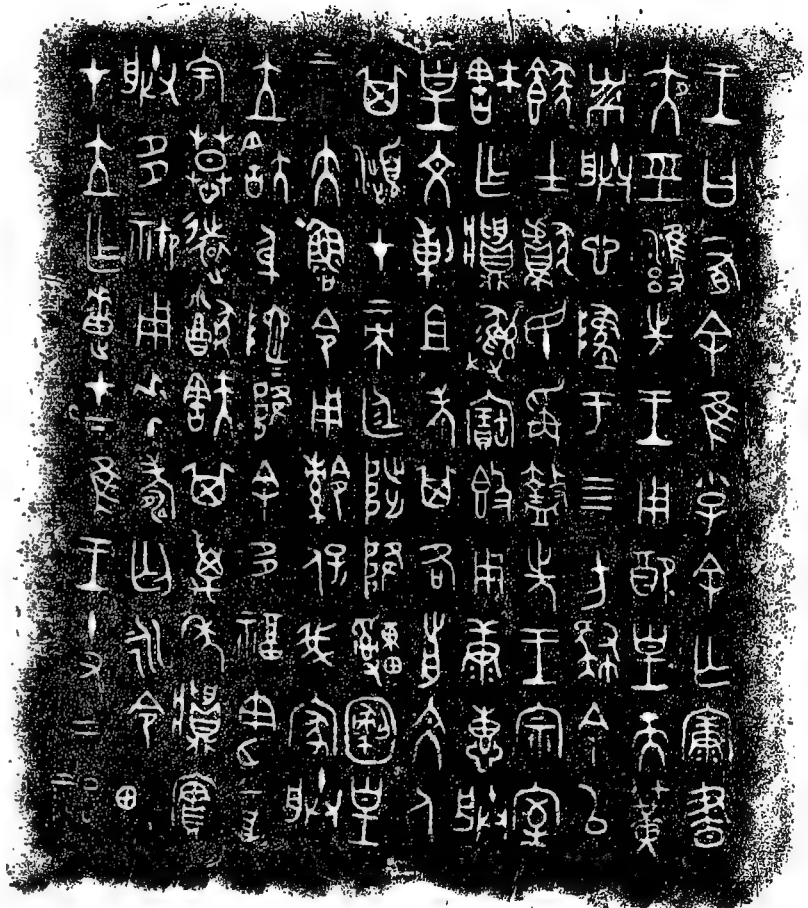 王曰有余隹小子余亡康晝
夜巠雍先王用配皇天簧
黹朕心墜于四方肆余以
士獻民爯盩先王宗室
㝬乍彝寶簋用康惠朕
皇文剌且考其各前文人
其瀕才帝廷陟降申皇
帝大魯令用令保我家朕
立㝬身阤阤降余多福憲烝
宇慕遠猷㝬其萬年實
朕多禦用壽匄永令畯
才立乍疐才下隹王十又二祀